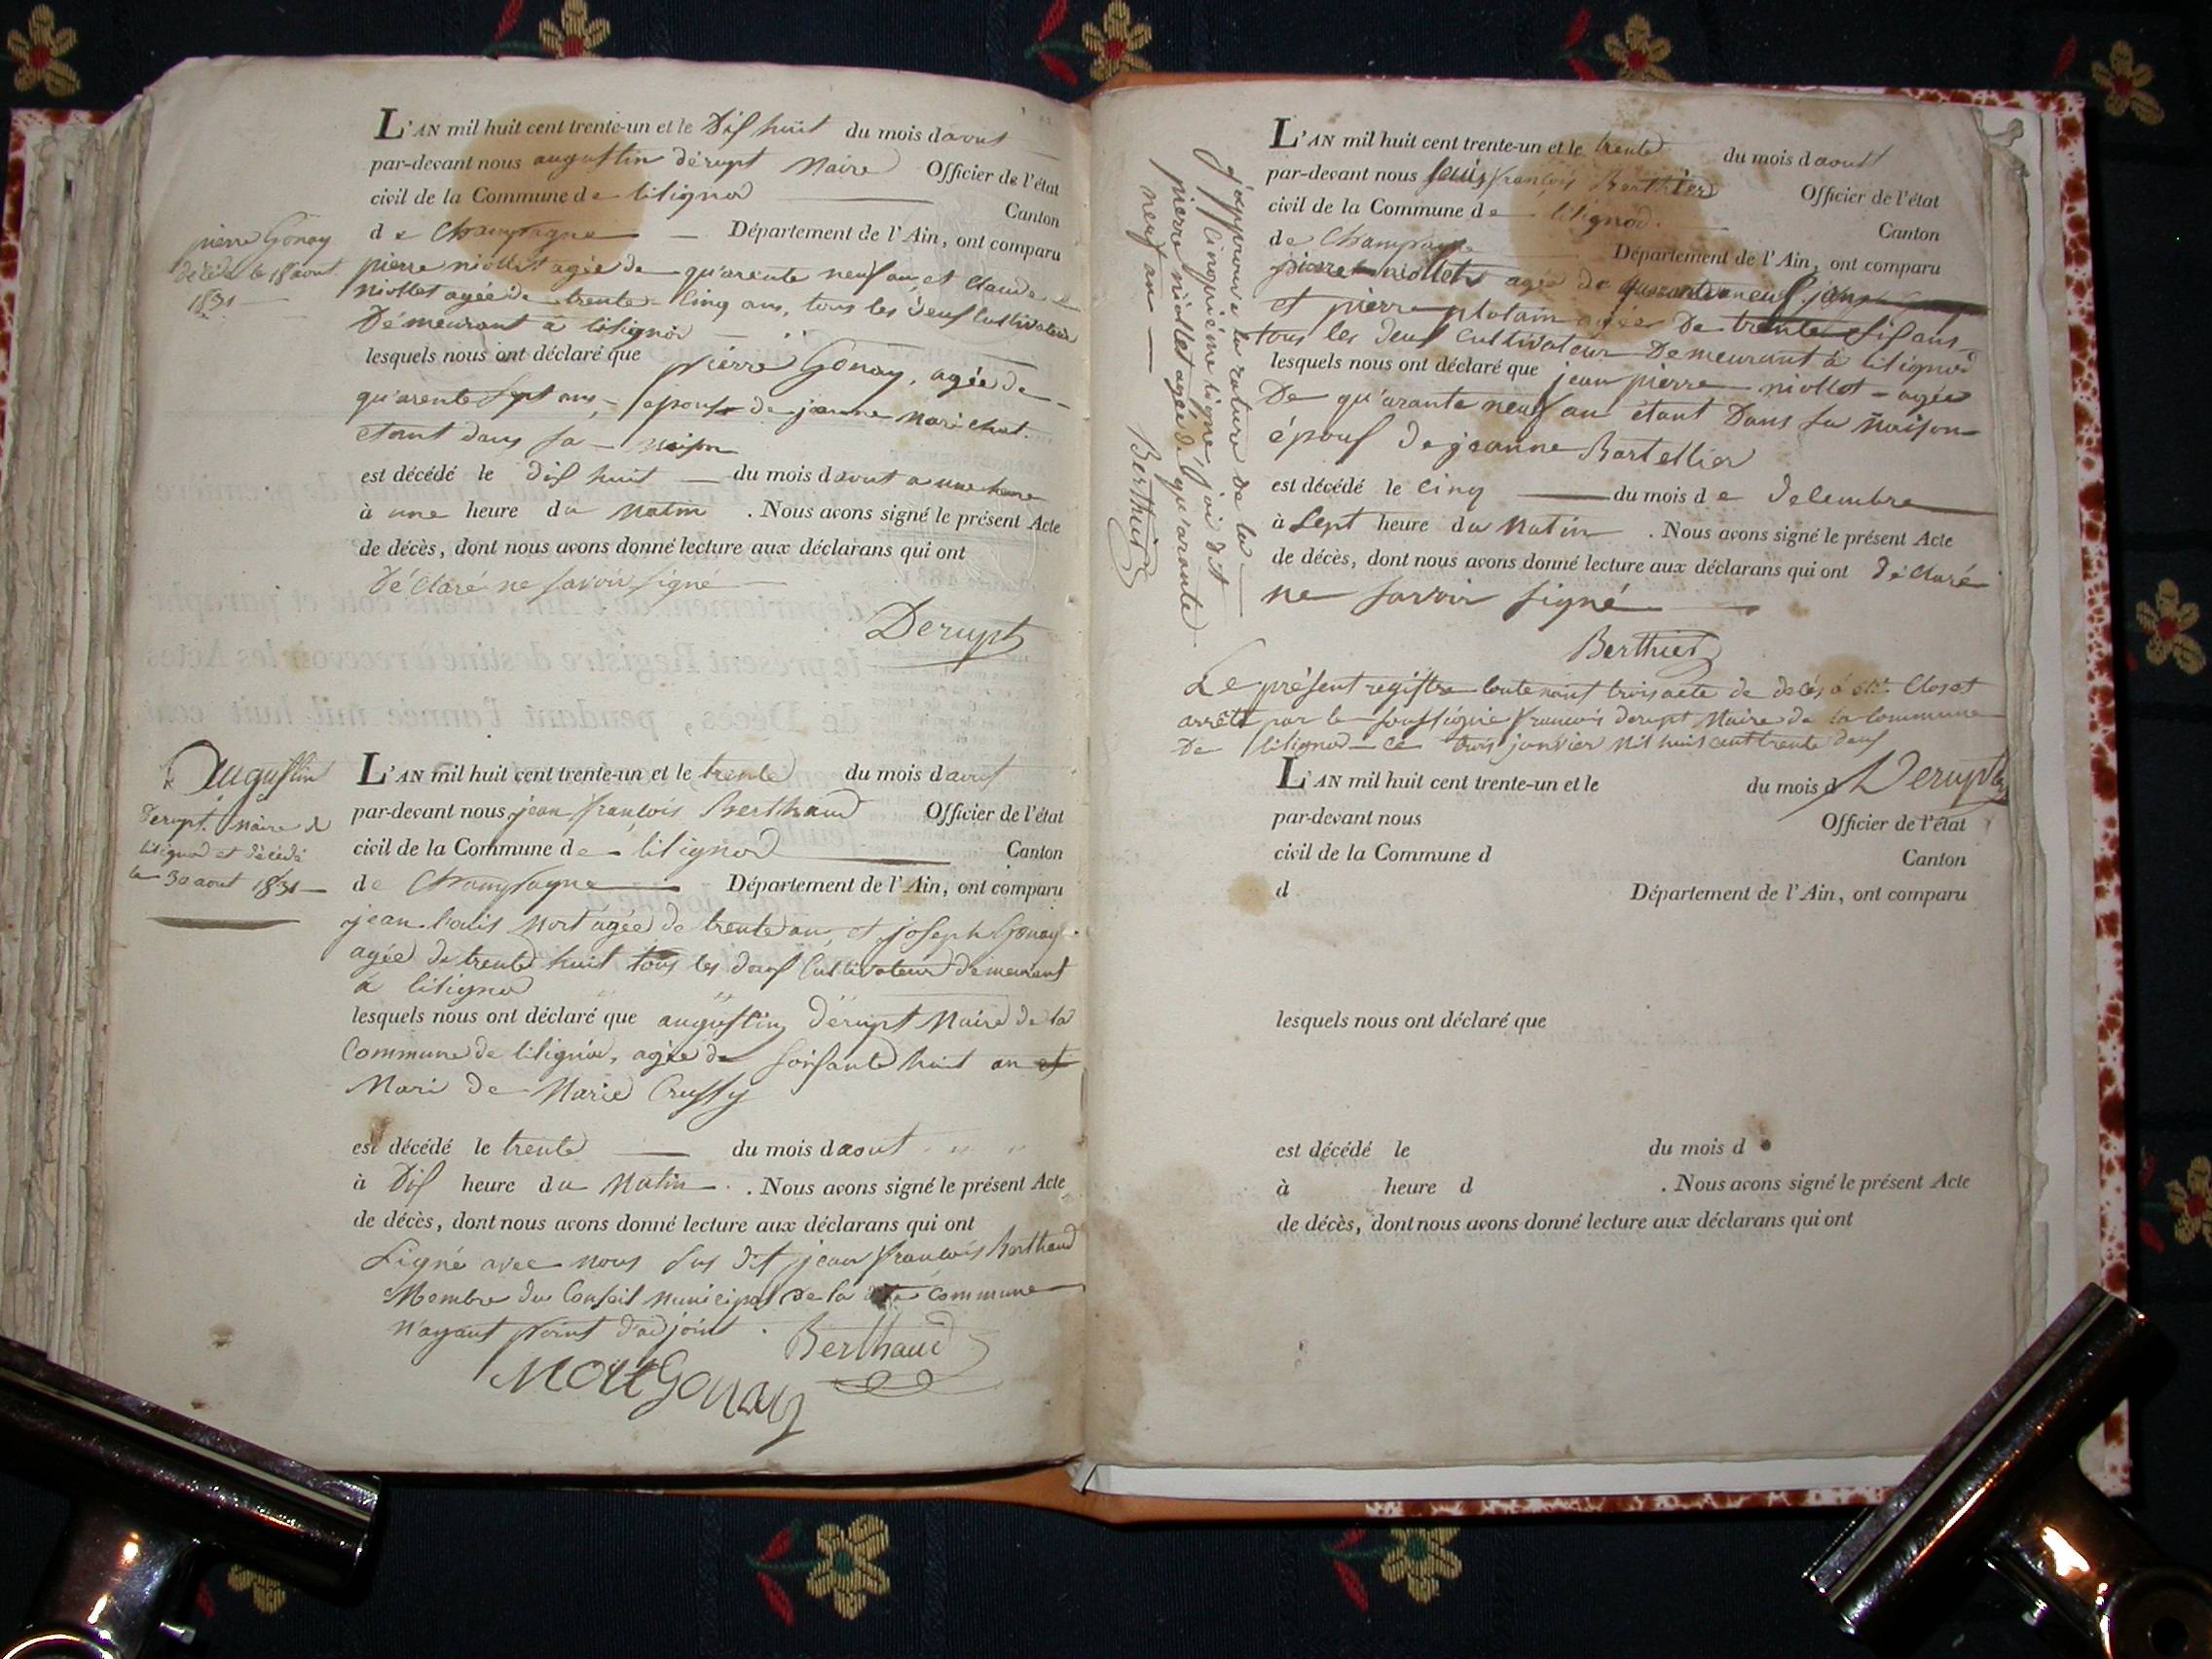 L'AN mil huit cent trente-un et le Dis huit du mois d aout
par-devant nous augustin dérupt Maire Officier de l'état
civil de la Commune de litignod Canton
de Champagne Département de l'Ain, ont comparu
pierre Gonay
décédé le 18 aout
1831
pierre niollet agée de qu'arente neuf an, et Claude
niollet agée de trente Cinq ans, tous les deus Cultivateur
Démeurant a litignod
lesquels nous ont déclaré que pierre Gonay, agée de
qu'arente sept ans, epous de jeanne Marichat.
etant dans sa maison
est décédé le dis huit du mois d aout a une heure
à une heure du Matin. Nous avons signé le présent Acte
de décès, dont nous avons donné lecture aux déclarans qui ont
Déclaré ne savoir signé
Derupt
Augustin
derupt. Maire de
litignod et décédé
le 30 aout 1831
L'AN mil huit cent trente-un et le trente du mois d aout
par-devant nous jean françois Berthaud Officier de l'état
civil de la Commune de litignod Canton
de Champagne Département de l'Ain, ont comparu
jean louis Mort agée de trente an, et joseph Gonay
agée de trente huit tous les deus Cultivateur demeurant
a litignod
lesquels nous ont déclaré que augustin dérupt Maire de la
Commune de litignod, agée de soisante huit an et
Mari de Marie Crussy
est décédé le trente du mois d aout
à Dis heure du Matin. Nous avons signé le présent Acte
de décès, dont nous avons donné lecture aux déclarans qui ont
Signé avec nous sus dit jean françois Berthaud
Membre du Conseil municipal de la dite Commune
n'ayant point d'adjoint. Berthaud
Mort Gonay
j'approuve la rature de la
cinquième ligne, j'ai dit
pierre niollet agée de qu'arante
neuf an Berthier
L'AN mil huit cent trente-un et le trente du mois d aout
par-devant nous françois Berthier Officier de l'état
civil de la Commune de litignod. Canton
de Champagne Département de l'Ain, ont comparu
pierre niollet agée de quarante neuf
et pierre platain agée De trente sis ans
tous les deus Cultivateur Demeurant à litignod
lesquels nous ont déclaré que jean pierre niollet agée
De qu'arante neuf an étant Dans sa Maison
épous de jeanne Bartellier
est décédé le cinq du mois de décembre
à Sept heure du Matin. Nous avons signé le présent Acte
de décès, dont nous avons donné lecture aux déclarans qui ont déclaré
ne savoir signé
Berthier
Le présent registre contenant trois acte de décès a été Closet
arrêté par le soussigné françois derupt Maire de la Commune
De litignod ce trois janvier Mil huis cent trente deus
Derupt
L'AN mil huit cent trente-un et le du mois d
par-devant nous Officier de l'état
civil de la Commune d Canton
d Département de l'Ain, ont comparu
lesquels nous ont déclaré que
est décédé le du mois d
à heure d . Nous avons signé le présent Acte
de décès, dont nous avons donné lecture aux déclarans qui ont